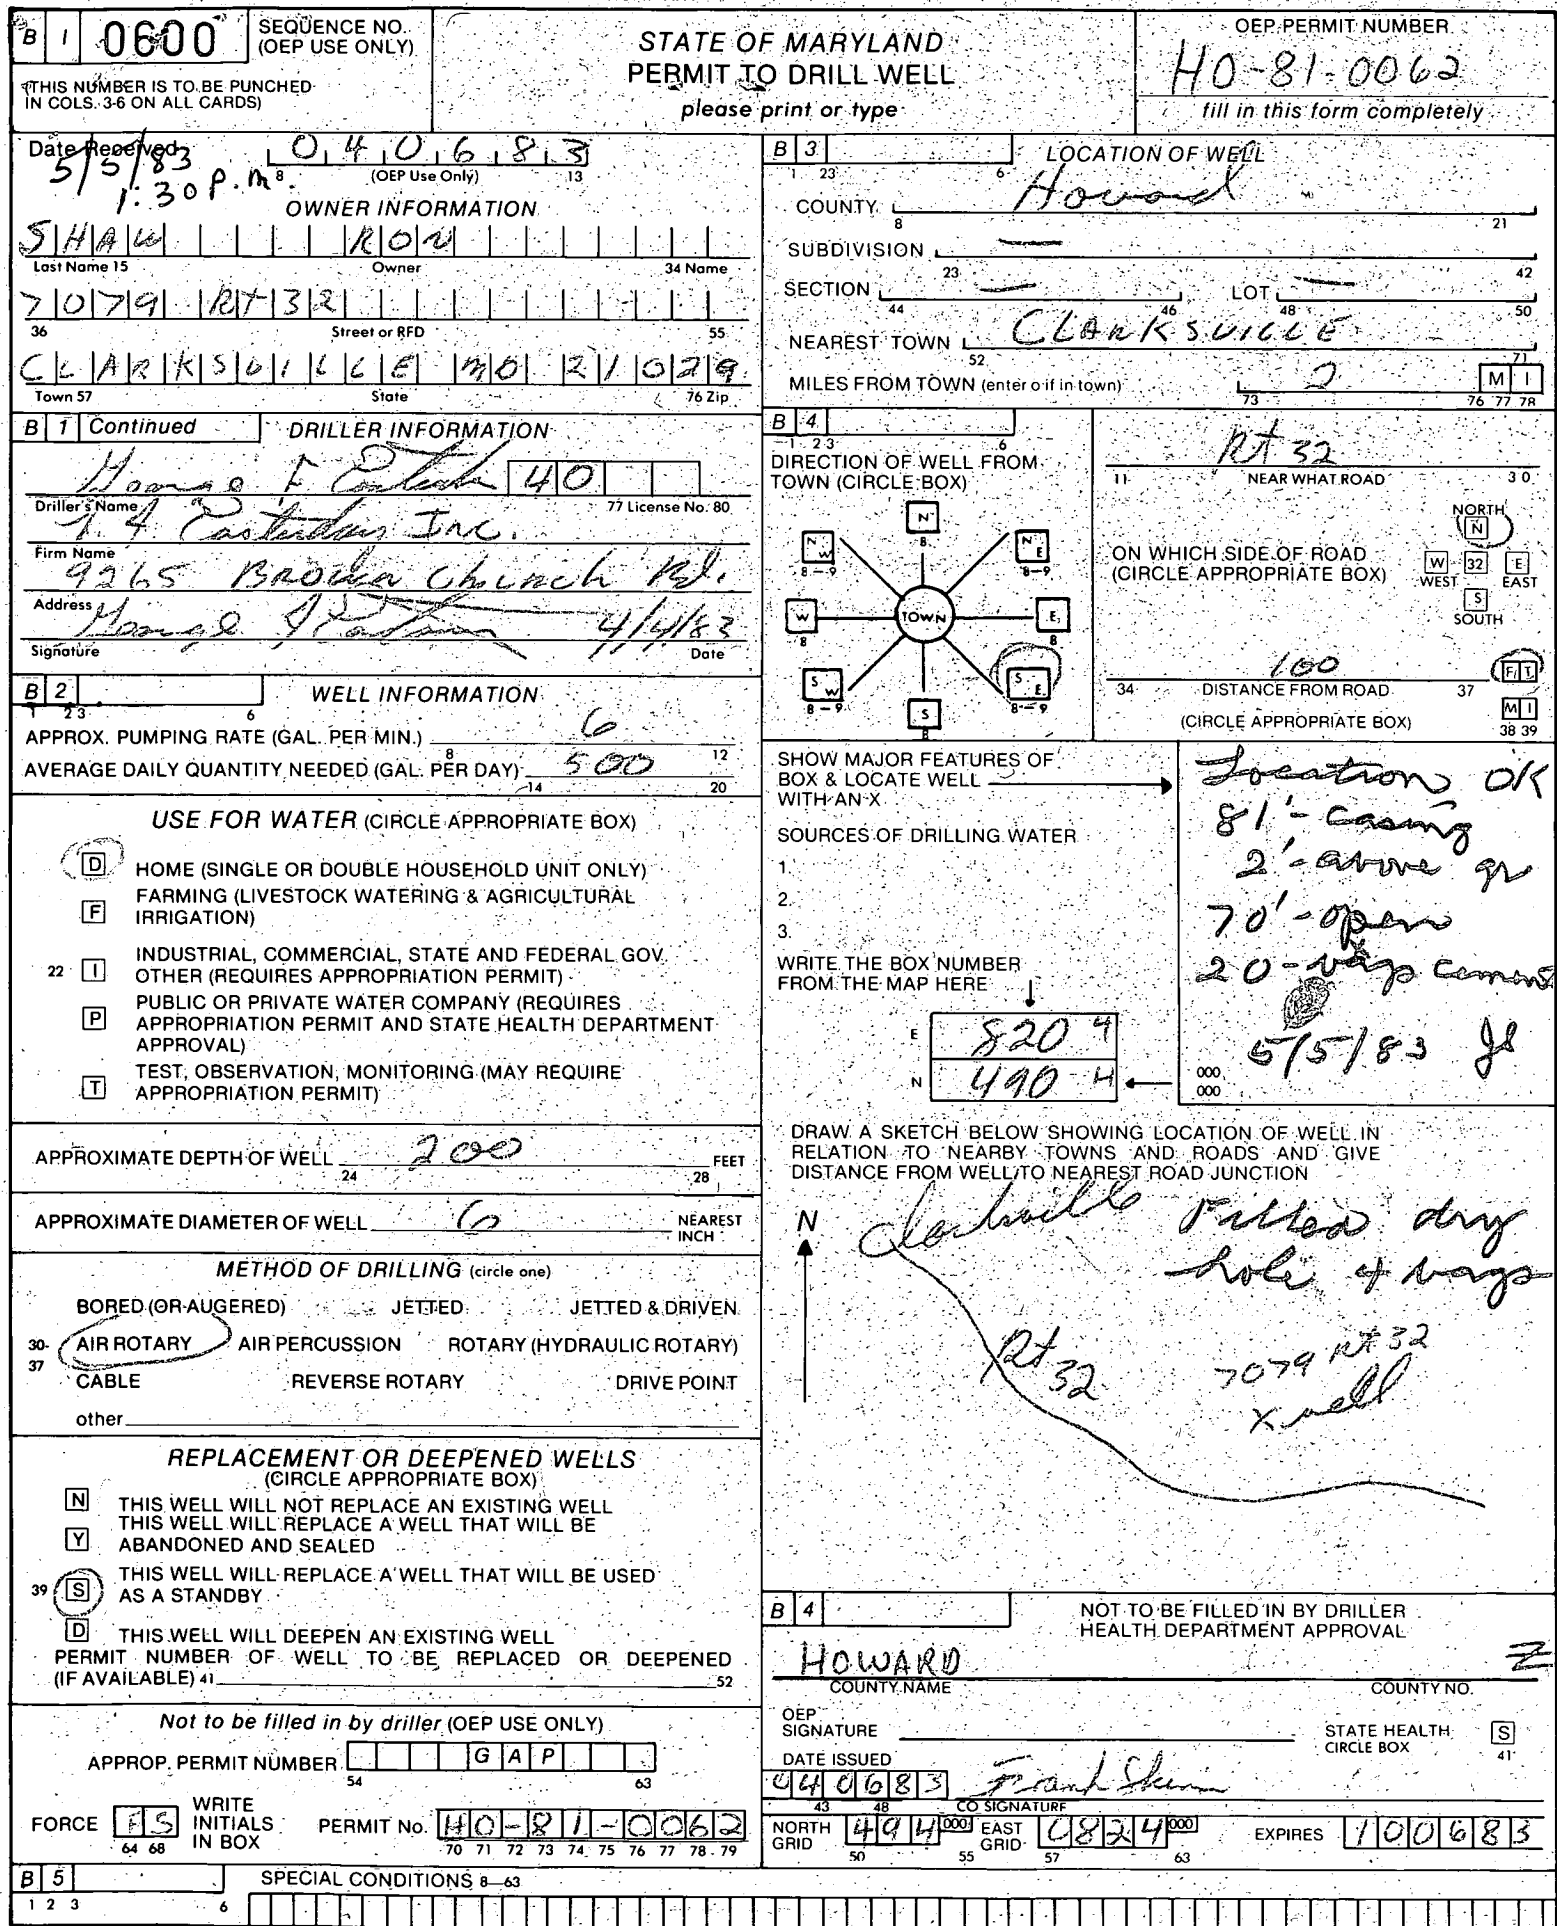 B 1 0600 SEQUENCE NO. (OEP USE ONLY)
(THIS NUMBER IS TO BE PUNCHED
IN COLS. 3-6 ON ALL CARDS)
STATE OF MARYLAND
PERMIT TO DRILL WELL
please print or type
OEP PERMIT NUMBER
HO-81-0062
fill in this form completely
Date Received
5/5/83
1:30 p.m.
040683
8 (OEP Use Only) 13
OWNER INFORMATION
SHAW RON
Last Name 15 Owner 34 Name
7079 Rt 32
36 Street or RFD 55
CLARKSVILLE MD 21029
Town 57 State 76 Zip
B 1 Continued DRILLER INFORMATION
George F 40
Driller's Name 77 License No. 80
Inc.
Firm Name
9265 Church Rd.
Address
4/4/83
Signature Date
B 2 WELL INFORMATION
1 2 3 6
APPROX. PUMPING RATE (GAL. PER MIN.) 6
8 12
AVERAGE DAILY QUANTITY NEEDED (GAL. PER DAY) 500
14 20
USE FOR WATER (CIRCLE APPROPRIATE BOX)
D HOME (SINGLE OR DOUBLE HOUSEHOLD UNIT ONLY)
F FARMING (LIVESTOCK WATERING & AGRICULTURAL
IRRIGATION)
22 I INDUSTRIAL, COMMERCIAL, STATE AND FEDERAL GOV.
OTHER (REQUIRES APPROPRIATION PERMIT)
P PUBLIC OR PRIVATE WATER COMPANY (REQUIRES
APPROPRIATION PERMIT AND STATE HEALTH DEPARTMENT
APPROVAL)
T TEST, OBSERVATION, MONITORING (MAY REQUIRE
APPROPRIATION PERMIT)
APPROXIMATE DEPTH OF WELL 200 FEET
24 28
APPROXIMATE DIAMETER OF WELL 6 NEAREST
INCH
METHOD OF DRILLING (circle one)
BORED (OR AUGERED) JETTED JETTED & DRIVEN
30-37 AIR ROTARY AIR PERCUSSION ROTARY (HYDRAULIC ROTARY)
CABLE REVERSE ROTARY DRIVE POINT
other
REPLACEMENT OR DEEPENED WELLS
(CIRCLE APPROPRIATE BOX)
N THIS WELL WILL NOT REPLACE AN EXISTING WELL
Y THIS WELL WILL REPLACE A WELL THAT WILL BE
ABANDONED AND SEALED
39 S THIS WELL WILL REPLACE A WELL THAT WILL BE USED
AS A STANDBY
D THIS WELL WILL DEEPEN AN EXISTING WELL
PERMIT NUMBER OF WELL TO BE REPLACED OR DEEPENED
(IF AVAILABLE) 41 52
Not to be filled in by driller (OEP USE ONLY)
APPROP. PERMIT NUMBER GAP
54 63
FORCE FS WRITE INITIALS IN BOX PERMIT No. HO-81-0062
64 68 70 71 72 73 74 75 76 77 78 79
B 3 LOCATION OF WELL
1 23 6
COUNTY Howard
8 21
SUBDIVISION —
23 42
SECTION — LOT —
44 46 48 50
NEAREST TOWN CLARKSVILLE
52 71
MILES FROM TOWN (enter o if in town) 2 MI
73 76 77 78
B 4
1 2 3 6
DIRECTION OF WELL FROM
TOWN (CIRCLE BOX)
N
8
NW NE
8-9 8-9
W TOWN E
8 8
SW SE
8-9 8-9
S
8
Rt 32
11 NEAR WHAT ROAD 30
ON WHICH SIDE OF ROAD
(CIRCLE APPROPRIATE BOX)
NORTH
N
W 32 E
WEST EAST
S
SOUTH
100 FT
34 DISTANCE FROM ROAD 37
(CIRCLE APPROPRIATE BOX) MI
38 39
SHOW MAJOR FEATURES OF
BOX & LOCATE WELL
WITH AN X
SOURCES OF DRILLING WATER
1.
2.
3.
WRITE THE BOX NUMBER
FROM THE MAP HERE
E 820 4
N 490 4
000
000
Location OK
81'-casing
2'-above gr
70'-open
20-bags cement
5/5/83
DRAW A SKETCH BELOW SHOWING LOCATION OF WELL IN
RELATION TO NEARBY TOWNS AND ROADS AND GIVE
DISTANCE FROM WELL TO NEAREST ROAD JUNCTION
N
Clarksville
Filled dry
hole 4 bags
Rt 32
7079 Rt 32
x well
B 4 NOT TO BE FILLED IN BY DRILLER
HEALTH DEPARTMENT APPROVAL
HOWARD
COUNTY NAME COUNTY NO.
OEP
SIGNATURE STATE HEALTH
CIRCLE BOX S
41
DATE ISSUED
040683 Frank
43 48 CO SIGNATURE
NORTH GRID 494 000 EAST GRID 0824 000 EXPIRES 100683
50 55 57 63
B 5 SPECIAL CONDITIONS 8-63
1 2 3 6